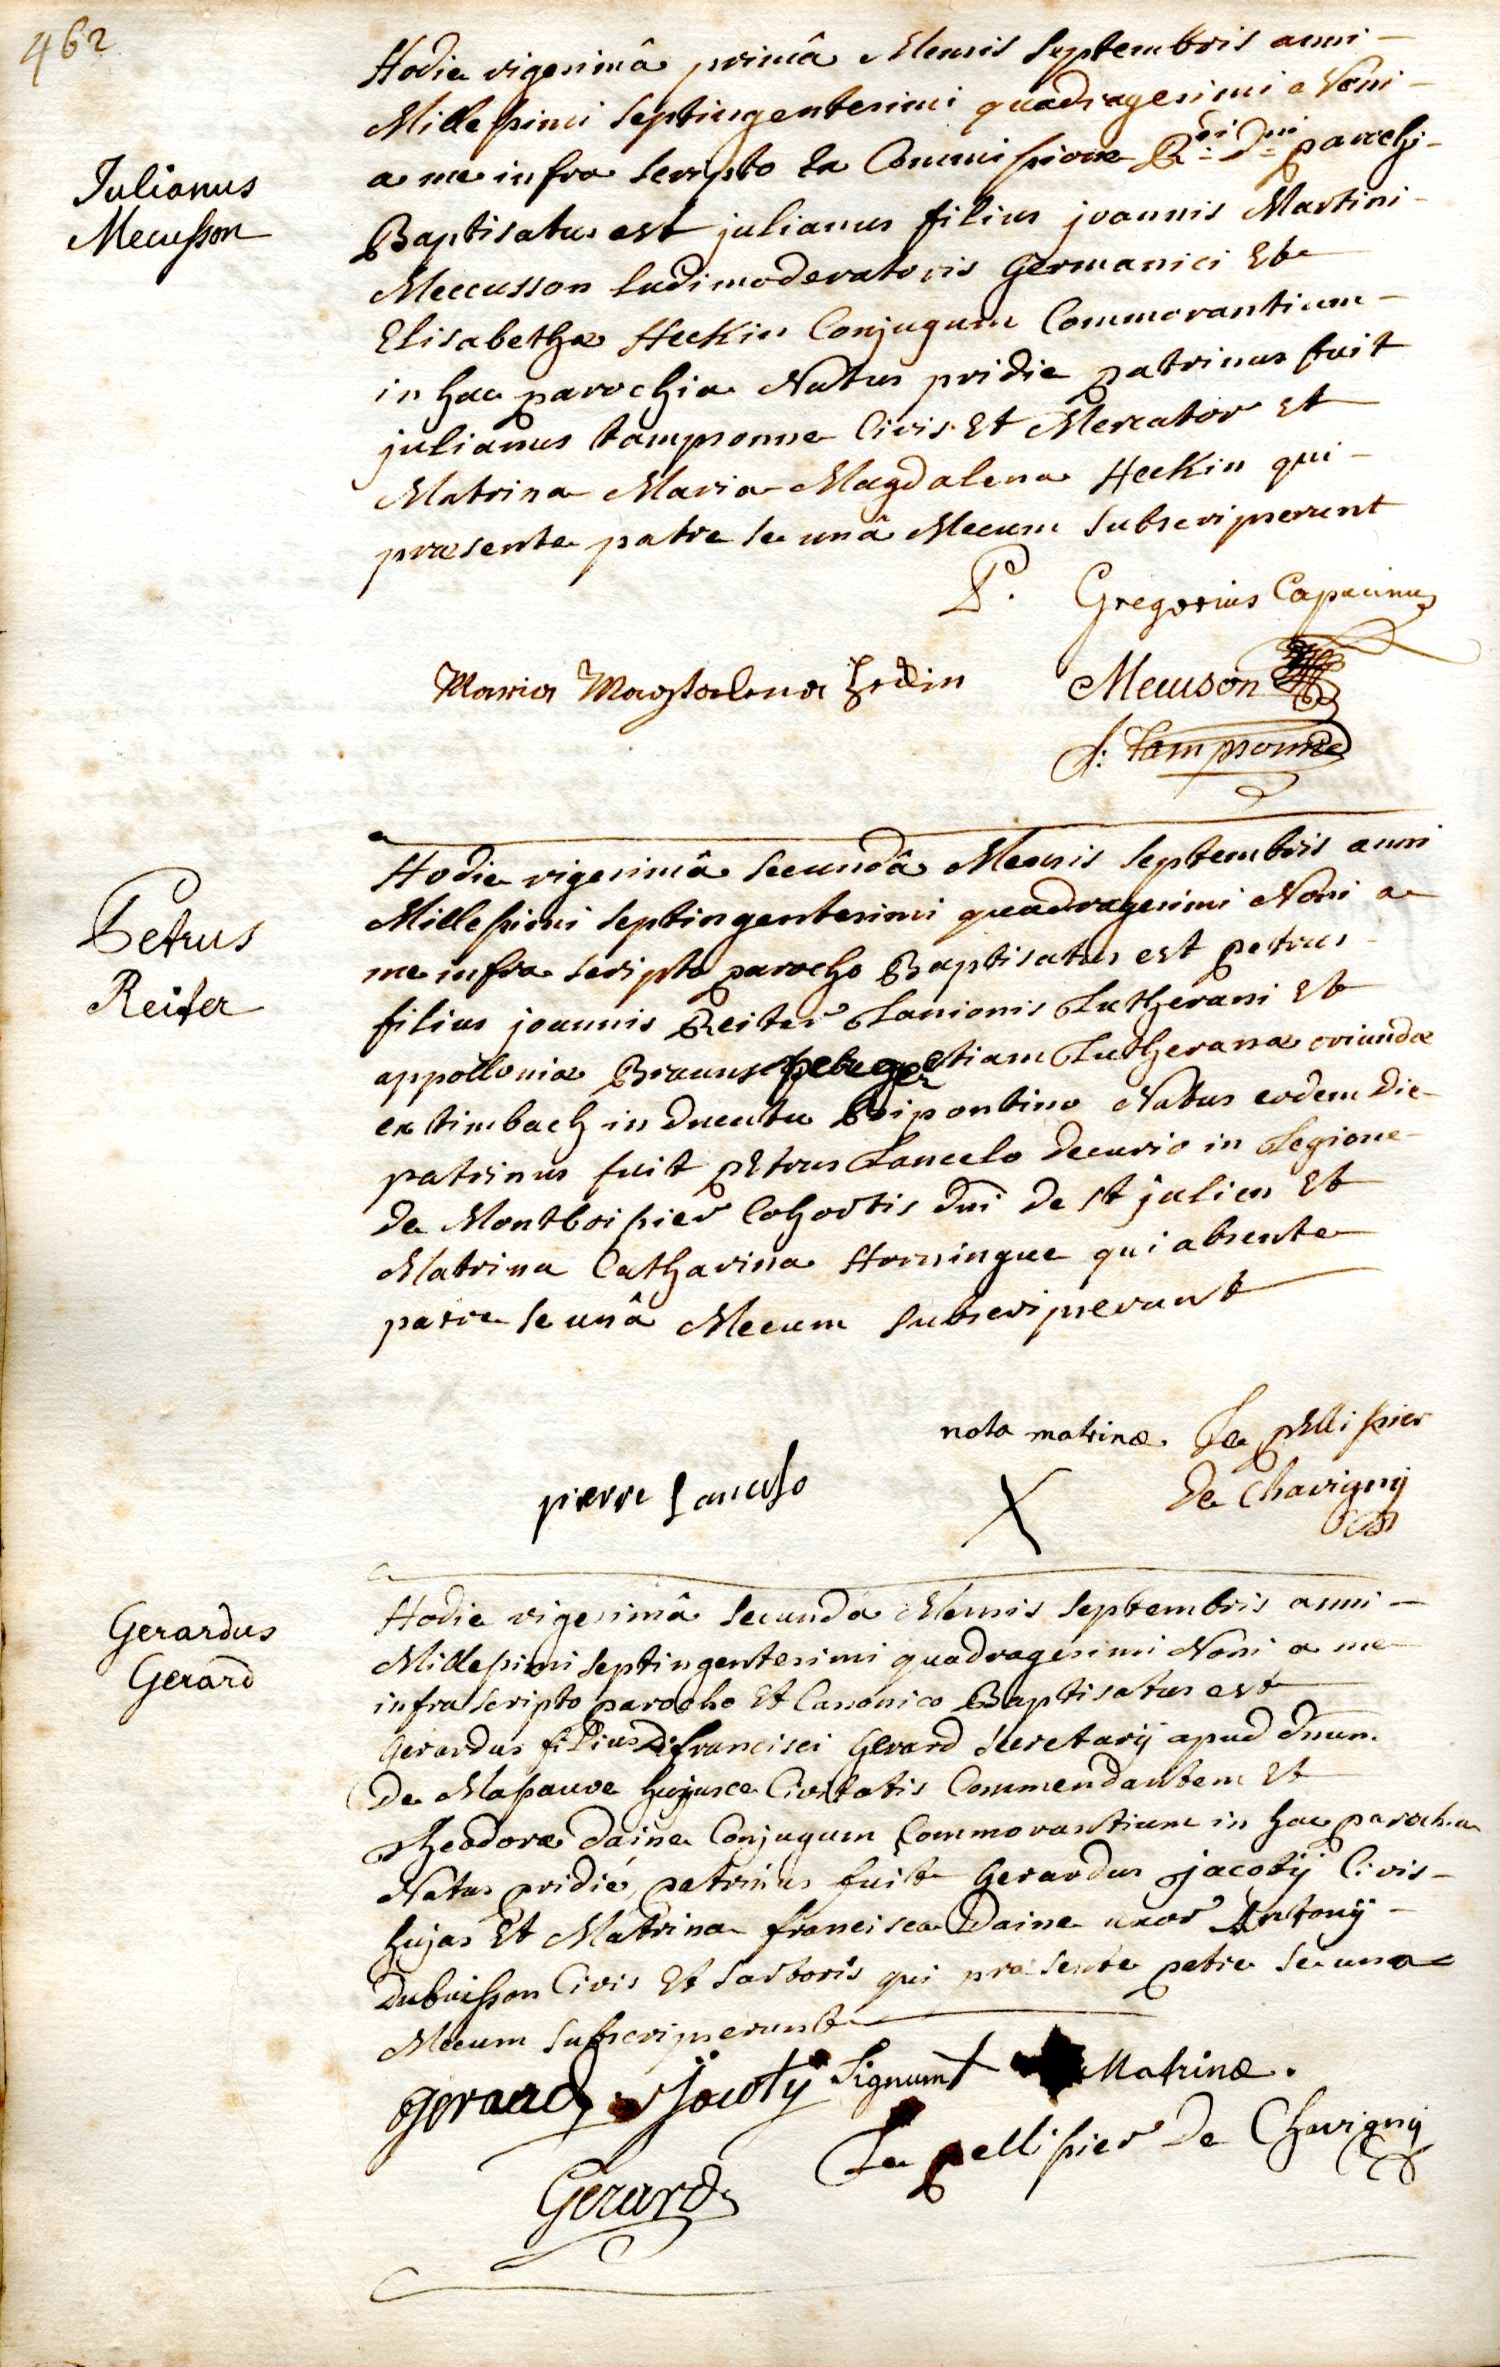 462
Julianus
Mecusson
Hodie vigesimâ primâ Mensis Septembris anni
Millesimi Septingentesimi quadragesimi Noni
a me infra scripto Ex Commissione Rdi Dni parochi
Baptisatus est julianus filius joannis Martini
Meccusson ludimoderatoris Germanici Et
Elisabethæ Heckin Conjugum Commorantium
in hac parochia Natus pridie patrinus fuit
julianus tampsonne Civis Et Mercator Et
Matrina Maria Magdalena Heckin qui
præsente patre se unâ Mecum Subscripserunt
P. Gregorius Capucinus
Maria Magdalena Hekin
Mecuson
J: Tampsonne
Petrus
Reiter
Hodie vigesimâ Secundâ Mensis Septembris anni
Millesimi Septingentesimi quadragesimi Noni a
me infra scripto parocho Baptisatus est petrus
filius joannis Reiter Lanionis Lutherani Et
appolloniæ etiam Lutheranæ oriundæ
ex timbach in Ducatu Bipontino Natus eodem Die
patrinus fuit pEtrus Lancelo Decurio in Legione
de Montboissier Cohortis dni de st julien Et
Matrina Catharina Horningue qui absente
patre se unâ Mecum Subscripserunt
nota matrinæ
X
Le pElissier
De Chavigny
pierre Lancelo
Gerardus
Gerard
Hodie vigesimâ Secunda Mensis Septembris anni
Millesimi Septingentesimi quadragesimi Noni a me
infra scripto parocho Et Canonico Baptisatus est
Gerardus filius francisci Gerard Secretarij apud dnum
De Masauve hujusce Civitatis Commendantem Et
Theodoræ Daine Conjugum Commorantium in hac parochia
Natus pridié, patrinus fuit Gerardus jacotÿ Civis
hujas Et Matrina francisca Daine uxor Antonÿ
Dubuisson Civis Et Sartoris qui præsente patre se una
Mecum Subscripserunt
gerard Jacoty Signum + Matrinæ.
Le pellissier De Chavigny
Gerard